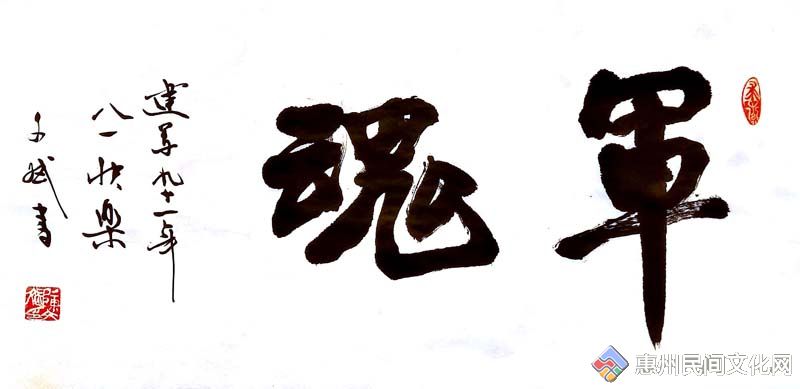 軍魂
建军九十一年
八一快樂
文斌書
惠州民间文化网